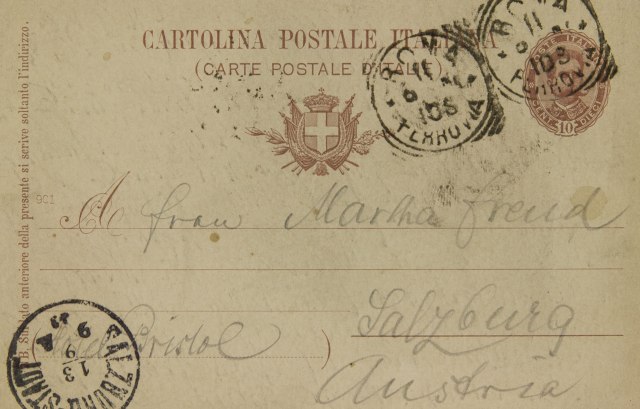 CARTOLINA POSTALE ITALIANA
(CARTE POSTALE D'ITALIE)
ROMA
11
103
FERROVIA
ROMA
11
103
FERROVIA
10
DIECI
901
A Frau Martha Freud
Salzburg
(Hotel Bristol)
Austria
NB. Sul lato anteriore della presente si scrive soltanto l'indirizzo.
SALZBURG STADT
13
9